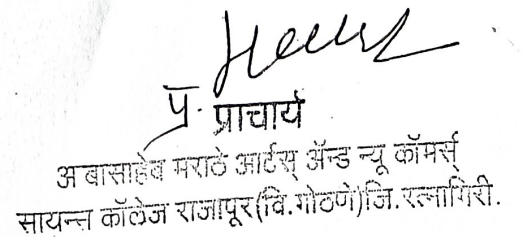 प्र. प्राचार्य
आबासाहेब मराठे आर्टस् ॲन्ड न्यू कॉमर्स्
सायन्स कॉलेज राजापूर(वि.गोठणे)जि.रत्नागिरी.